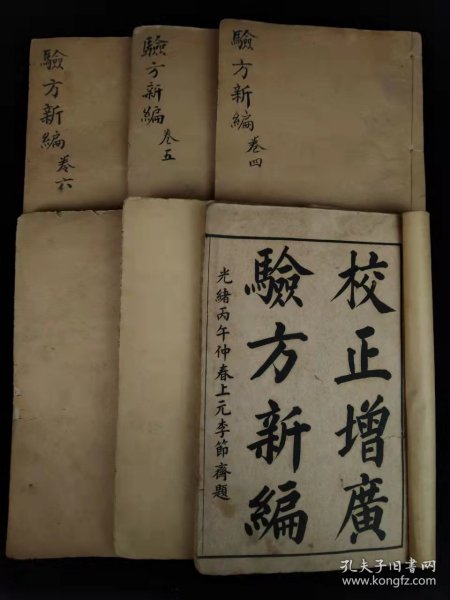 驗方新編 卷四
驗方新編 卷五
驗方新編 卷六
校正增廣
驗方新編
光緒丙午仲春上元李節齋題
孔夫子旧书网
www.kongfz.com